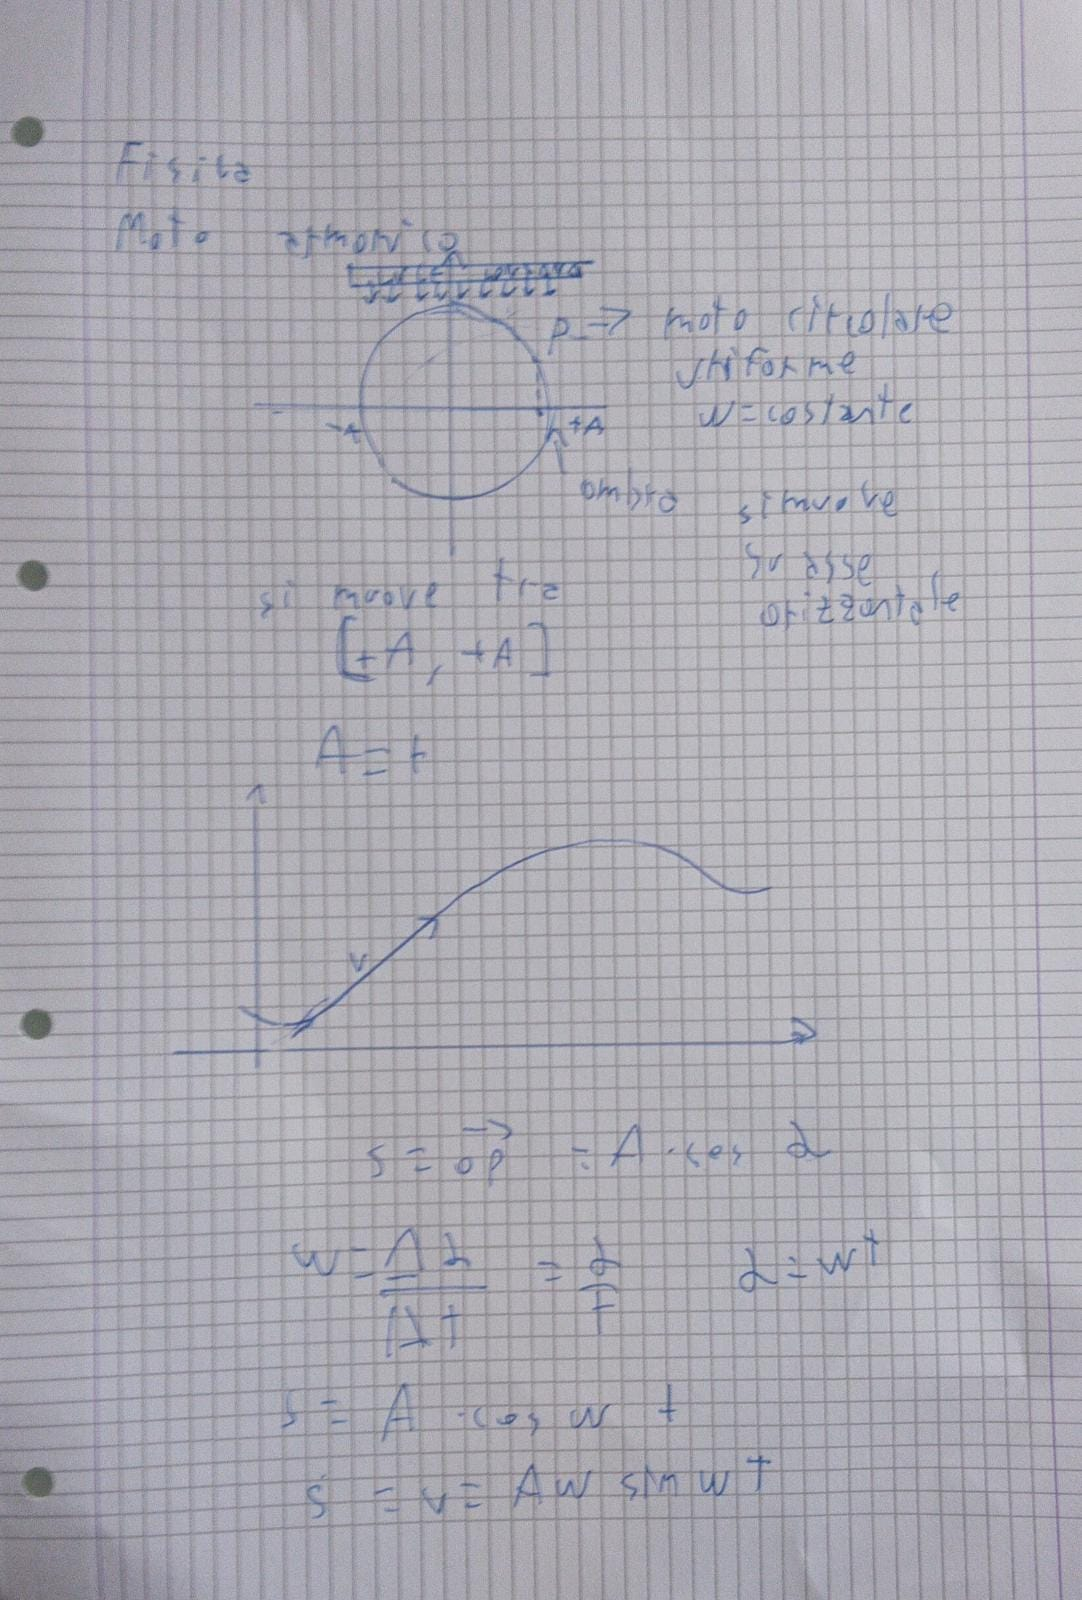 Fisica
Moto armonico
P → moto circolare
uniforme
w = costante
-A
+A
ombra si muove
su asse
orizzontale
si muove tra
[+A, +A]
A = r
v
s = OP = A · cos α
w = Δα / Δt = α / t α = wt
s = A · cos w t
s = v = A w sin w t